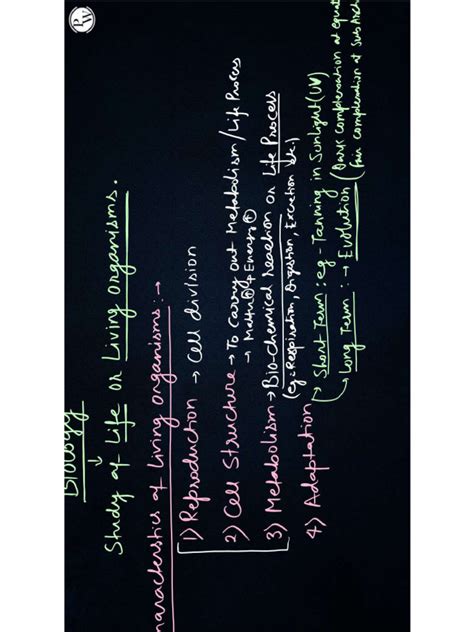 Biology
Study of Life or Living Organisms.
haracterstics of Living Organisms :→
1) Reproduction → Cell division
2) Cell Structure → To carry out Metabolism / Life Process
→ Matter ↑ Energy ↑
3) Metabolism → Bio-chemical reaction or Life Process
(eg: Respiration, Digestion, Excretion etc.)
4) Adaptation → Short Term : eg - Tanning in Sunlight (UV)
→ Long Term : → Evolution (Dark complexation at equat
Fair complexation at Sub Arch
PW